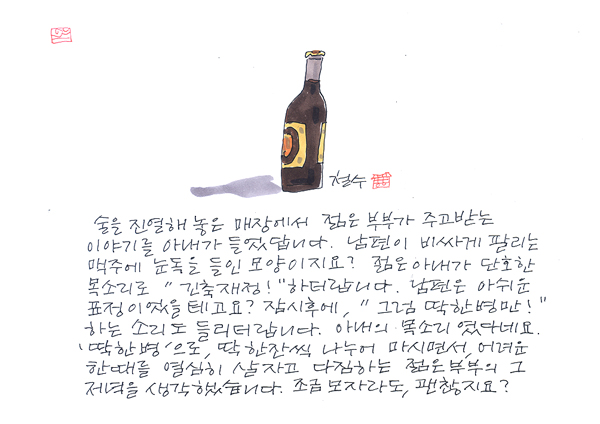 철수
술을 진열해 놓은 매장에서 젊은 부부가 주고받는
이야기를 아내가 들었답니다. 남편이 비싸게 팔리는
맥주에 눈독을 들인 모양이지요? 젊은아내가 단호한
목소리로 "긴축재정!" 하더랍니다. 남편은 아쉬운
표정이었을테고요? 잠시후에, "그럼 딱한병만!"
하는 소리도 들리더랍니다. 아내의 목소리였다네요.
'딱한병'으로, 딱한잔씩 나누어 마시면서, 어려운
한때를 열심히 살자고 다짐하는 젊은부부의 그
저녁을 생각했습니다. 조금 모자라도, 괜찮지요?